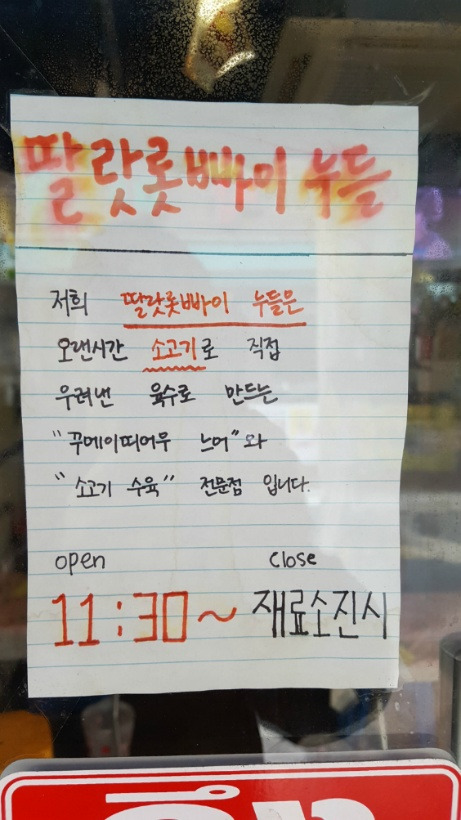 딸랏롯빠이 누들
저희 딸랏롯빠이 누들은
오랜시간 소고기로 직접
우려낸 육수로 만드는
"꾸에이띠어우 느어"와
"소고기 수육" 전문점 입니다.
open close
11:30~ 재료소진시